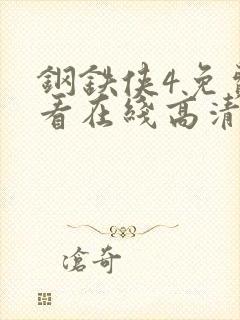 鋼鉄侠4免費
看在綫高清
滄奇